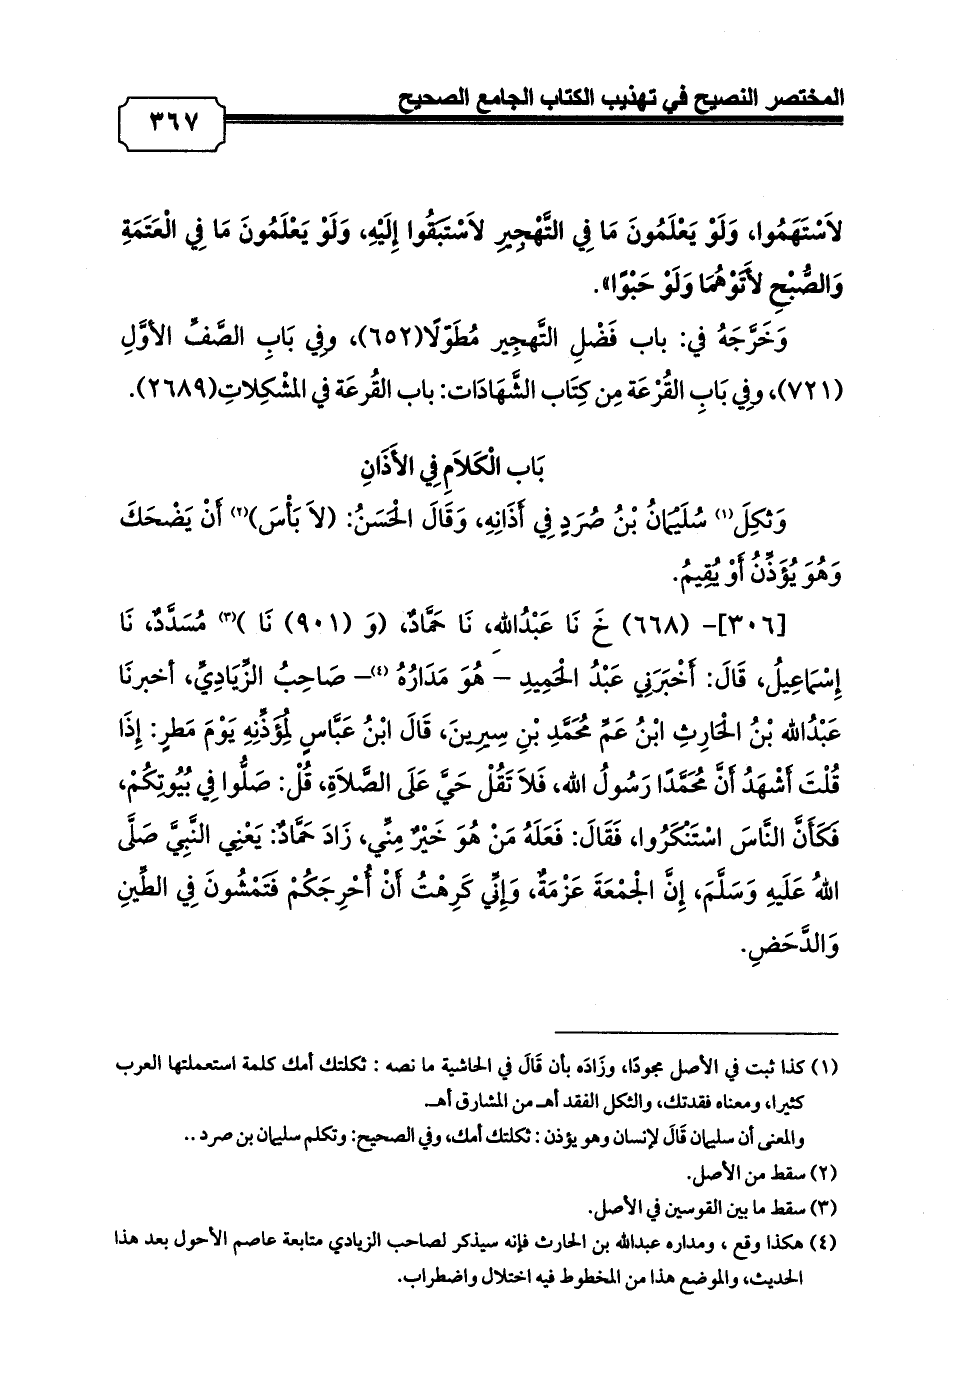 المختصر النصيح في تهذيب الكتاب الجامع الصحيح
٣٦٧
لاَسْتَهَمُوا، وَلَوْ يَعْلَمُونَ مَا فِي التَّهْجِيرِ لاَسْتَبَقُوا إِلَيْهِ، وَلَوْ يَعْلَمُونَ مَا فِي الْعَتَمَةِ
وَالصُّبْحِ لأَتَوْهُمَا وَلَوْ حَبْوًا».
وَخَرَّجَهُ في: باب فَضْلِ التَّهجِير مُطَوّلًا(٦٥٢)، وفِي بَابِ الصَّفِّ الأوَّلِ
(٧٢١)، وفِي بَابِ القُرْعَة مِن كِتَاب الشَّهَادَات: باب القُرعَة في المشْكِلاتِ(٢٦٨٩).
بَاب الْكَلاَمِ فِي الأَذَانِ
وَثكِلَ(١) سُلَيْمَانُ بْنُ صُرَدٍ فِي أَذَانِهِ، وَقَالَ الْحَسَنُ: (لاَ بَأْسَ)(٢) أَنْ يَضْحَكَ
وَهُوَ يُؤَذِّنُ أَوْ يُقِيمُ.
[٣٠٦]- (٦٦٨) خَ نَا عَبْدُالله، نَا حَمَّادٌ، (وَ (٩٠١) نَا )(٣) مُسَدَّدٌ، نَا
إِسْمَاعِيلُ، قَالَ: أَخْبَرَنِي عَبْدُ الْحَمِيدِ – هُوَ مَدَارُهُ (٤)– صَاحِبُ الزِّيَادِيِّ، أخبرنَا
عَبْدُالله بْنُ الْحَارِثِ ابْنُ عَمِّ مُحَمَّدِ بْنِ سِيرِينَ، قَالَ ابْنُ عَبَّاسٍ لِمُؤَذِّنِهِ يَوْمَ مَطَرٍ: إِذَا
قُلْتَ أَشْهَدُ أَنَّ مُحَمَّدًا رَسُولُ الله، فَلاَ تَقُلْ حَيَّ عَلَى الصَّلاَةِ، قُلْ: صَلُّوا فِي بُيُوتِكُمْ،
فَكَأَنَّ النَّاسَ اسْتَنْكَرُوا، فَقَالَ: فَعَلَهُ مَنْ هُوَ خَيْرٌ مِنِّي، زَادَ حَمَّادٌ: يَعْنِي النَّبِيَّ صَلَّى
اللهُ عَلَيهِ وَسَلَّمَ، إِنَّ الْجُمْعَةَ عَزْمَةٌ، وَإِنِّي كَرِهْتُ أَنْ أُحْرِجَكُمْ فَتَمْشُونَ فِي الطِّينِ
وَالدَّحَضِ.
(١) كذا ثبت في الأصل مجودًا، وزَادَه بأن قَالَ في الحاشية ما نصه : ثكلتك أمك كلمة استعملتها العرب
كثيرا، ومعناه فقدتك، والثكل الفقد أهـ من المشارق أهـ.
والمعنى أن سليمان قَالَ لإنسان وهو يؤذن : ثكلتك أمك، وفي الصحيح: وتكلم سليمان بن صرد ..
(٢) سقط من الأصل.
(٣) سقط ما بين القوسين في الأصل.
(٤) هكذا وقع ، ومداره عبدالله بن الحارث فإنه سيذكر لصاحب الزيادي متابعة عاصم الأحول بعد هذا
الحديث، والموضع هذا من المخطوط فيه اختلال واضطراب.